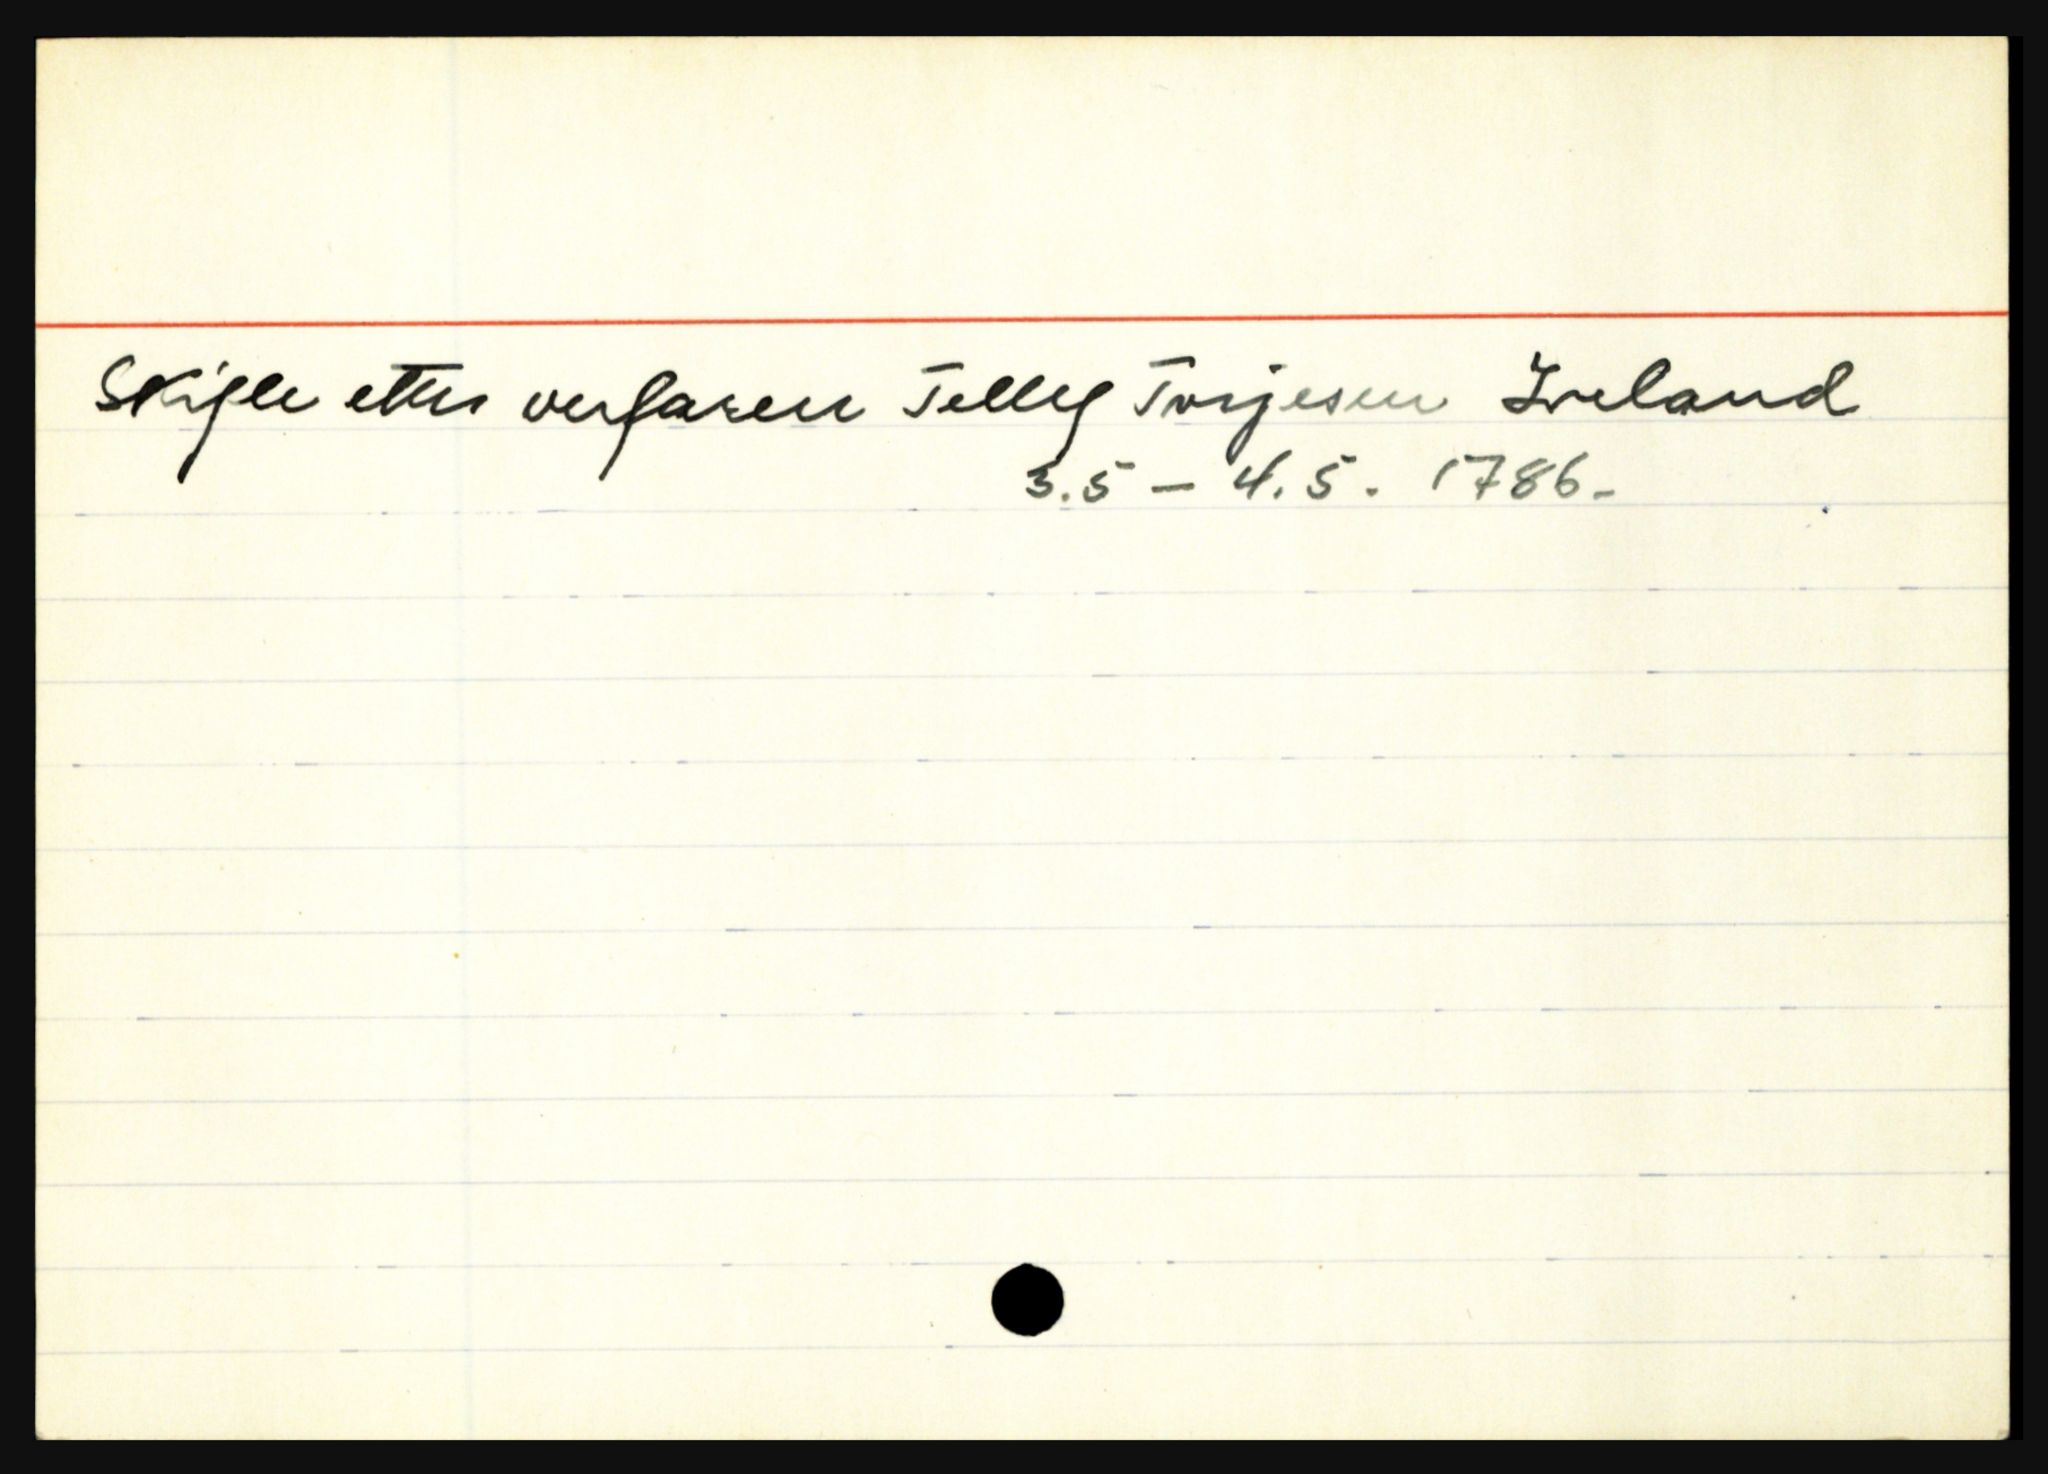 Skifte etter verfaren Tellef Torjesen Ireland
3.5 – 4.5. 1786.